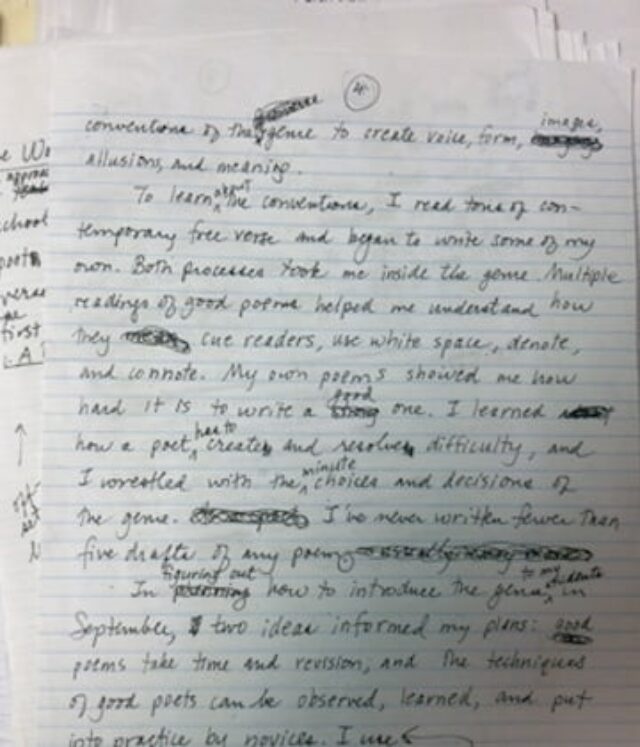 4
images,
conventions of the genre to create voice, form,
allusions, and meaning.
about
To learn the conventions, I read tons of con-
temporary free verse and began to write some of my
own. Both processes took me inside the genre. Multiple
readings of good poems helped me understand how
they cue readers, use white space, denote,
and connote. My own poems showed me how
good
hard it is to write a strong one. I learned
has to
how a poet creates and resolves difficulty, and
minute
I wrestled with the choices and decisions of
the genre. I've never written fewer than
five drafts of any poem
figuring out to my students
In planning how to introduce the genre in
September, two ideas informed my plans: good
poems take time and revision, and the techniques
of good poets can be observed, learned, and put
into practice by novices. I use
e Wo
school
poets
verse
first